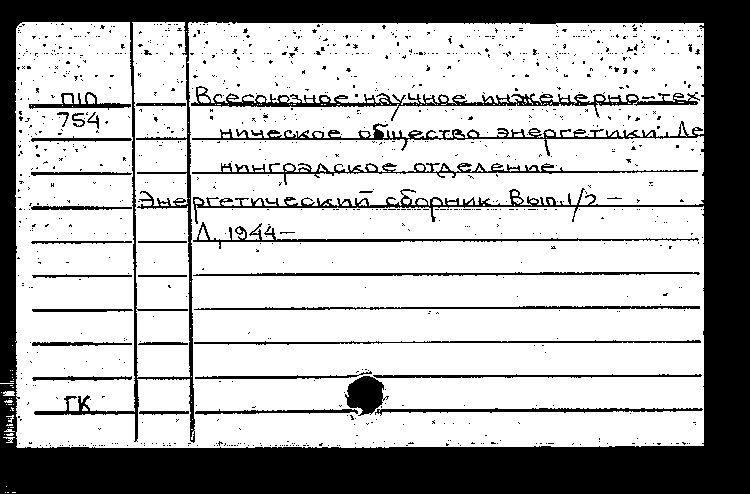 П10 Всесоюзное научное инженерно-тех-
754. ническое общество энергетики. Ле
нинградское отделение.
Энергетический сборник. Вып. 1/2 —
Л., 1944—
ГК